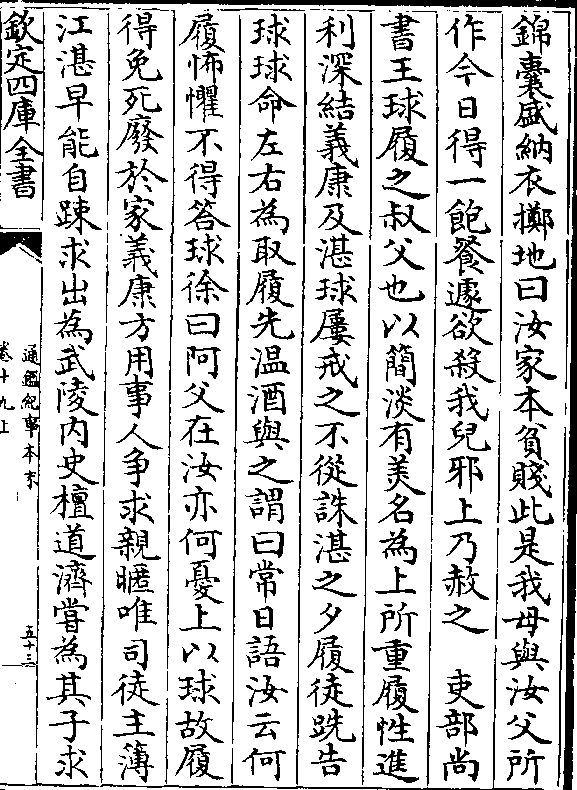 錦囊盛納衣擲地曰汝家本貧賤此是我母與汝父所
作今日得一飽餐遽欲殺我兒邪上乃赦之　吏部尚
書王球履之叔父也以簡淡有美名為上所重履性進
利深結義康及湛球屢戒之不從誅湛之夕履徒跣告
球球命左右為取履先温酒與之謂曰常日語汝云何
履怖懼不得答球徐曰阿父在汝亦何憂上以球故履
得免死廢於家義康方用事人争求親暱唯司徒主簿
江湛早能自踈求出為武陵内史檀道濟嘗為其子求
欽定四庫全書
通鑑紀事本末
卷十九上
五十三